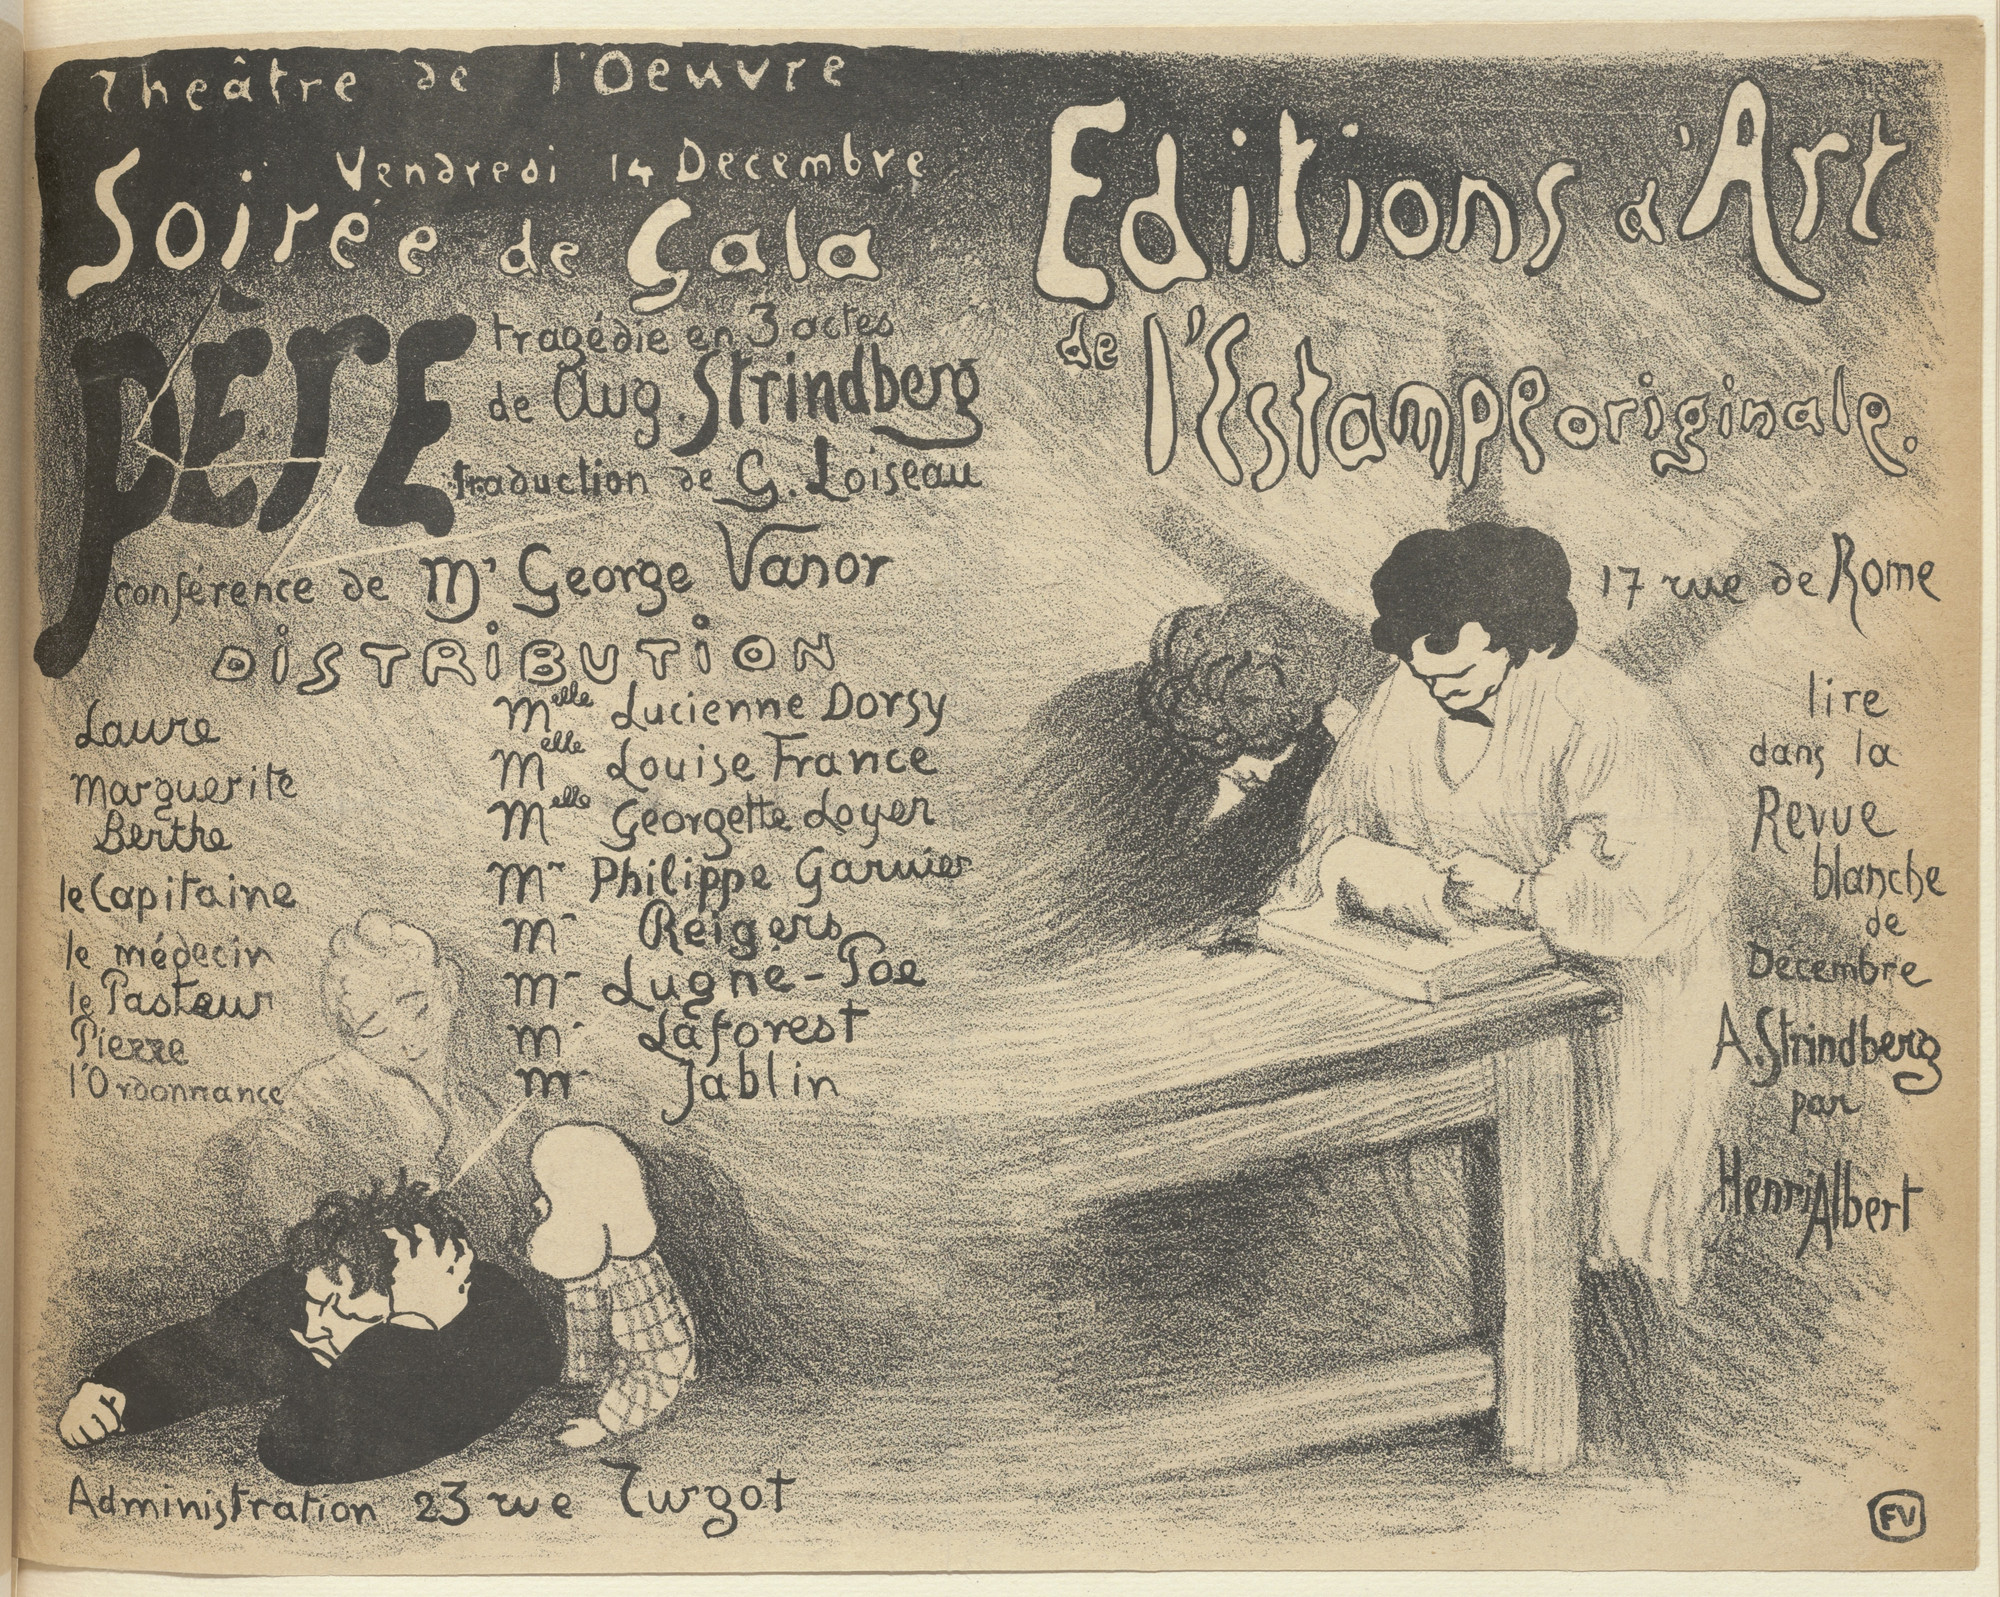 Theâtre de l'Oeuvre
Vendredi 14 Decembre
Soirée de Gala
PÈRE
tragédie en 3 actes
de Aug. Strindberg
traduction de G. Loiseau
conférence de Mr George Vanor
DISTRIBUTION
Laure Melle Lucienne Dorsy
Marguerite Melle Louise France
Berthe Melle Georgette Loyer
le Capitaine Mr Philippe Garnier
le médecin Mr Reigers
le Pasteur Mr Lugné-Poe
Pierre Mr Laforest
l'Ordonnance Mr Jablin
Administration 23 rue Turgot
Editions d'Art
de l'Estampe originale.
17 rue de Rome
lire
dans la
Revue
blanche
de
Décembre
A. Strindberg
par
Henri Albert
FV